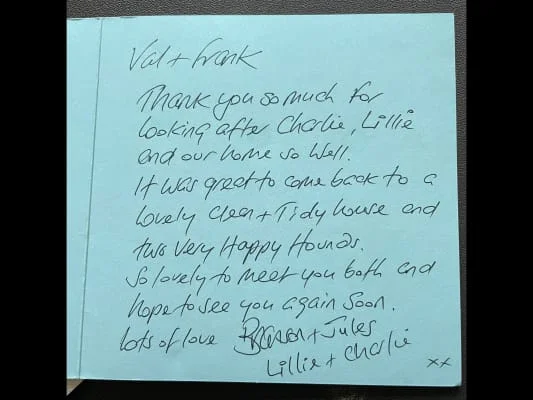 Val + Frank
Thank you so much for
looking after Charlie, Lillie
and our home so well.
It was great to come back to a
lovely clean + Tidy house and
two very Happy Hounds.
So lovely to meet you both and
hope to see you again soon.
Lots of love + Jules
Lillie + Charlie
xx